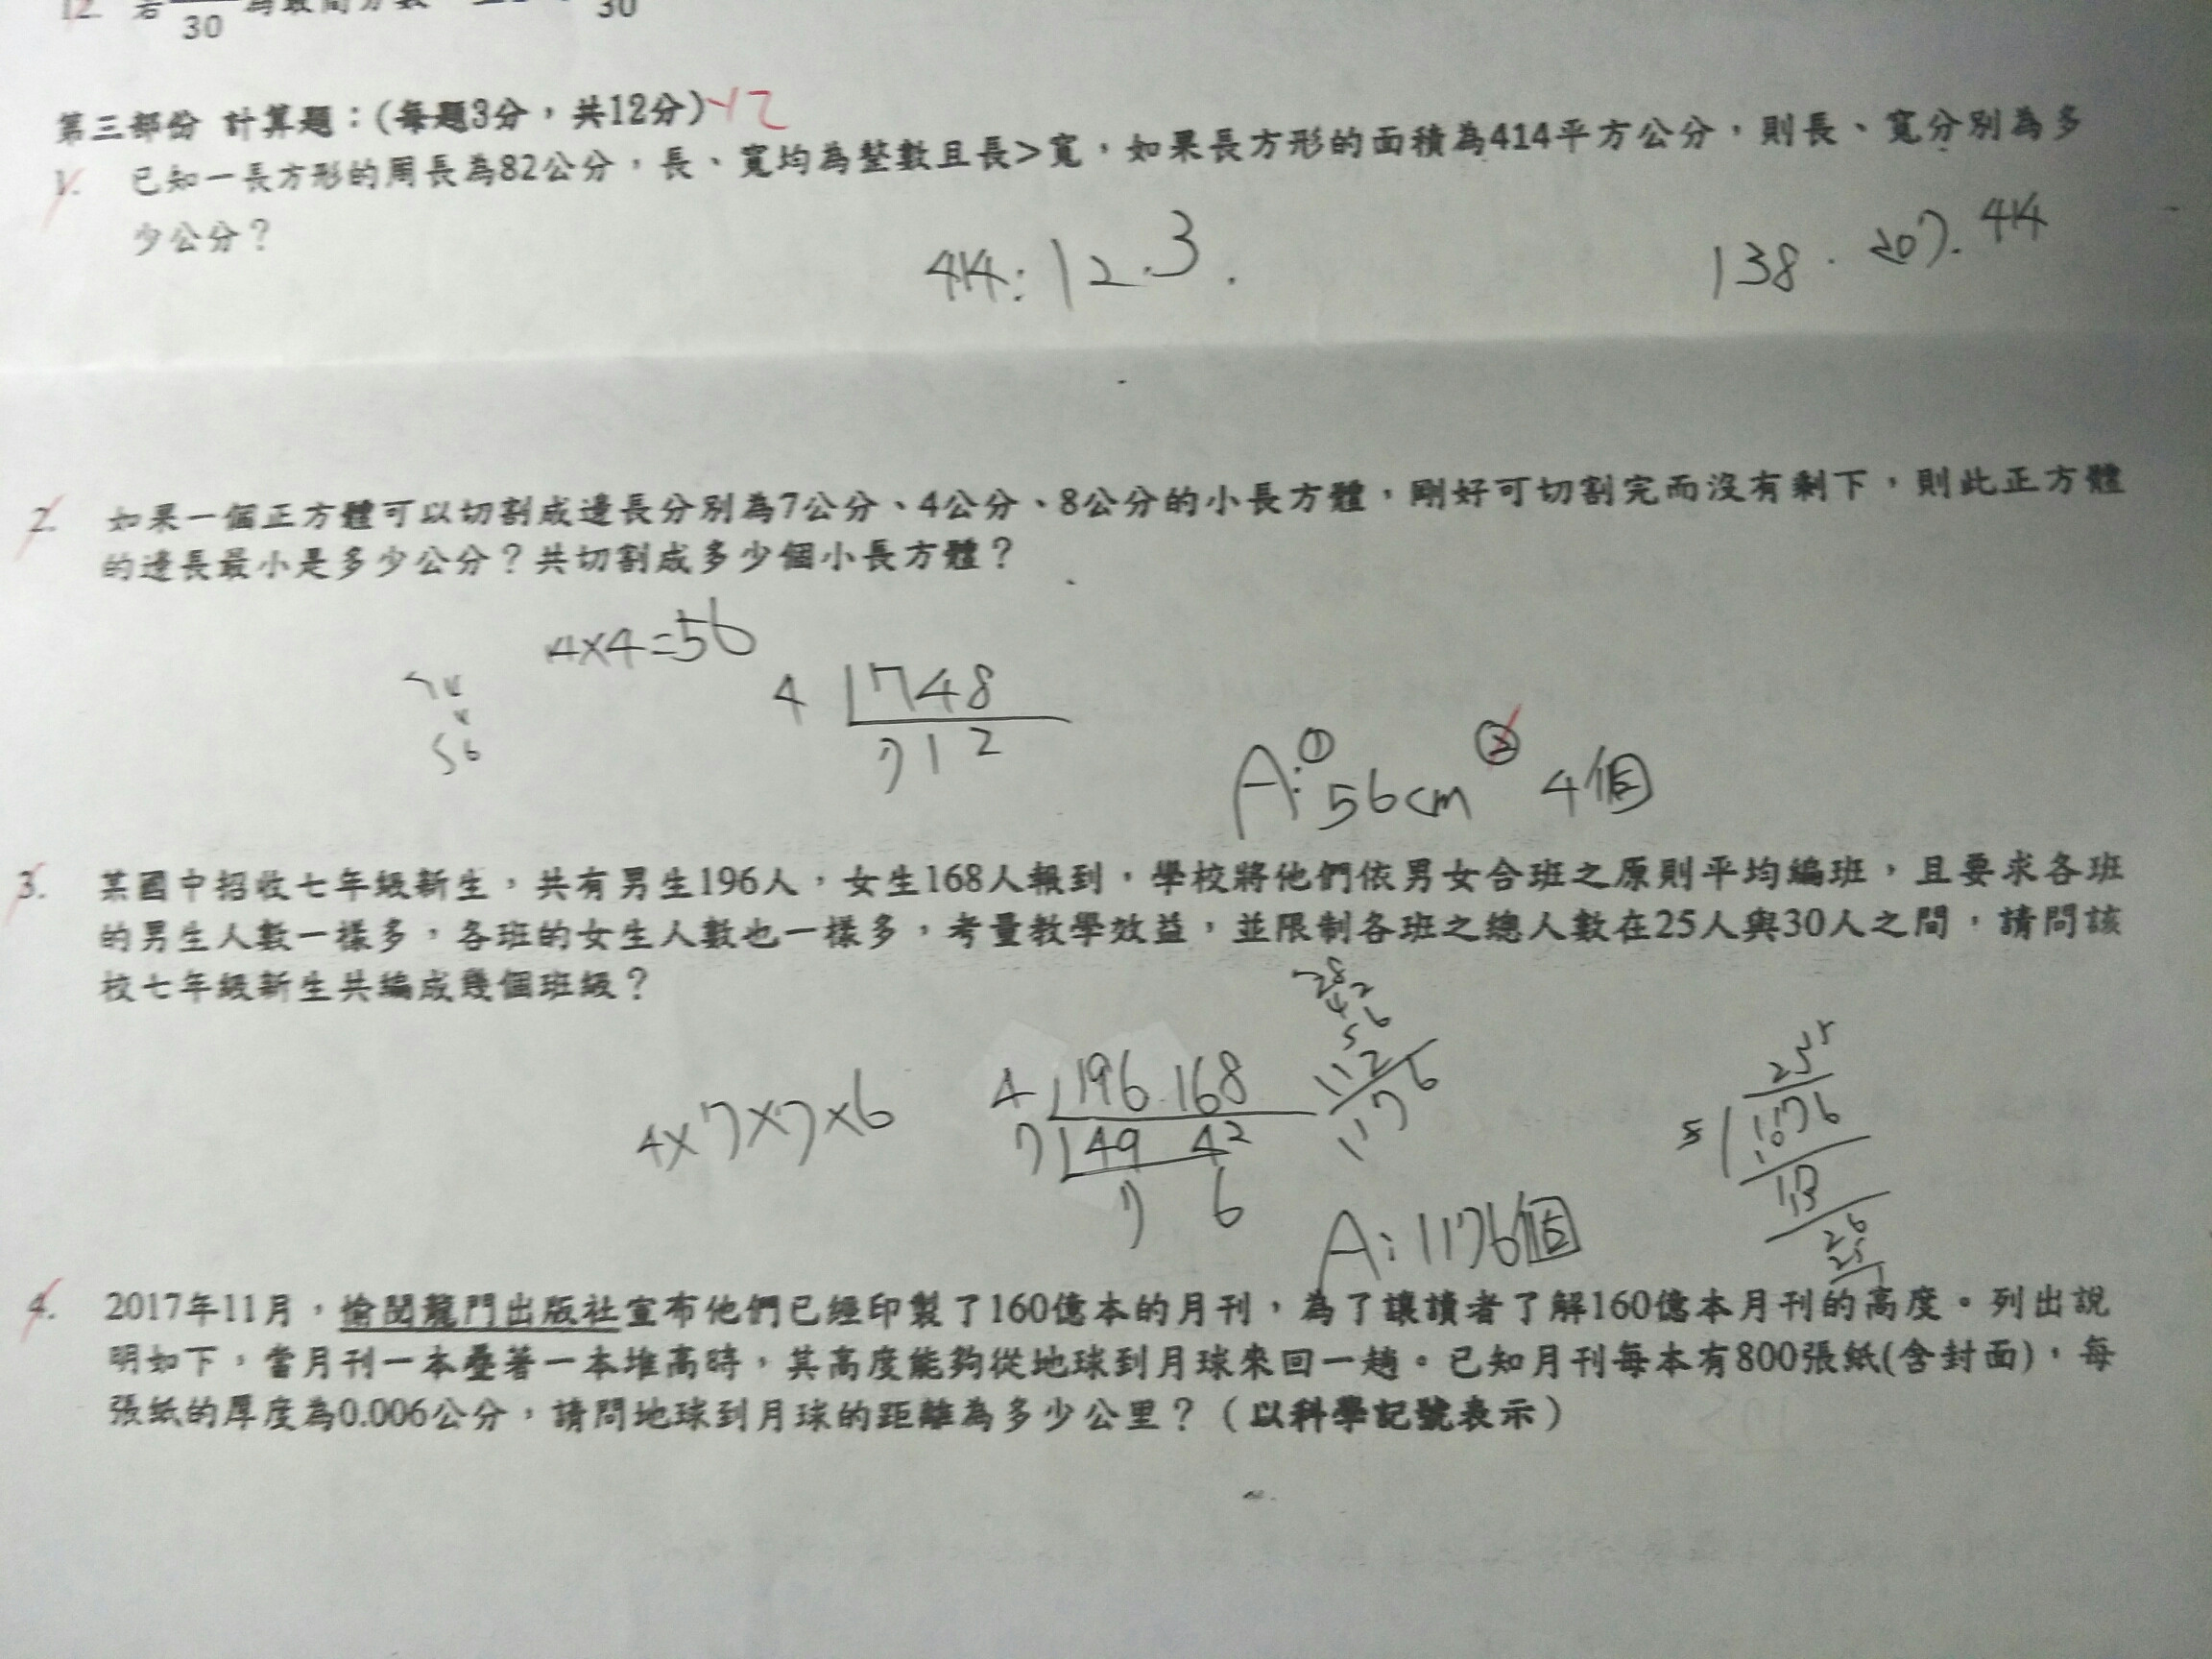 12. 若
30
30
第三部份 計算題：(每題3分，共12分) -12
1. 已知一長方形的周長為82公分，長、寬均為整數且長>寬，如果長方形的面積為414平方公分，則長、寬分別為多
少公分？
414: 1 2 . 3 .
138 . 207. 414
2. 如果一個正方體可以切割成邊長分別為7公分、4公分、8公分的小長方體，剛好可切割完而沒有剩下，則此正方體
的邊長最小是多少公分？共切割成多少個小長方體？
4×4=56
56
4 7 4 8
7 1 2
A:① 56cm ② 4個
3. 某國中招收七年級新生，共有男生196人，女生168人報到，學校將他們依男女合班之原則平均編班，且要求各班
的男生人數一樣多，各班的女生人數也一樣多，考量教學效益，並限制各班之總人數在25人與30人之間，請問該
校七年級新生共編成幾個班級？
4×7×7×6
4 196 168
7 49 42
7 6
28
42
56
112
1176
5 1176
10
A: 1176個
4. 2017年11月，愉閱龍門出版社宣布他們已經印製了160億本的月刊，為了讓讀者了解160億本月刊的高度。列出說
明如下，當月刊一本疊著一本堆高時，其高度能夠從地球到月球來回一趟。已知月刊每本有800張紙(含封面)，每
張紙的厚度為0.006公分，請問地球到月球的距離為多少公里？（以科學記號表示）